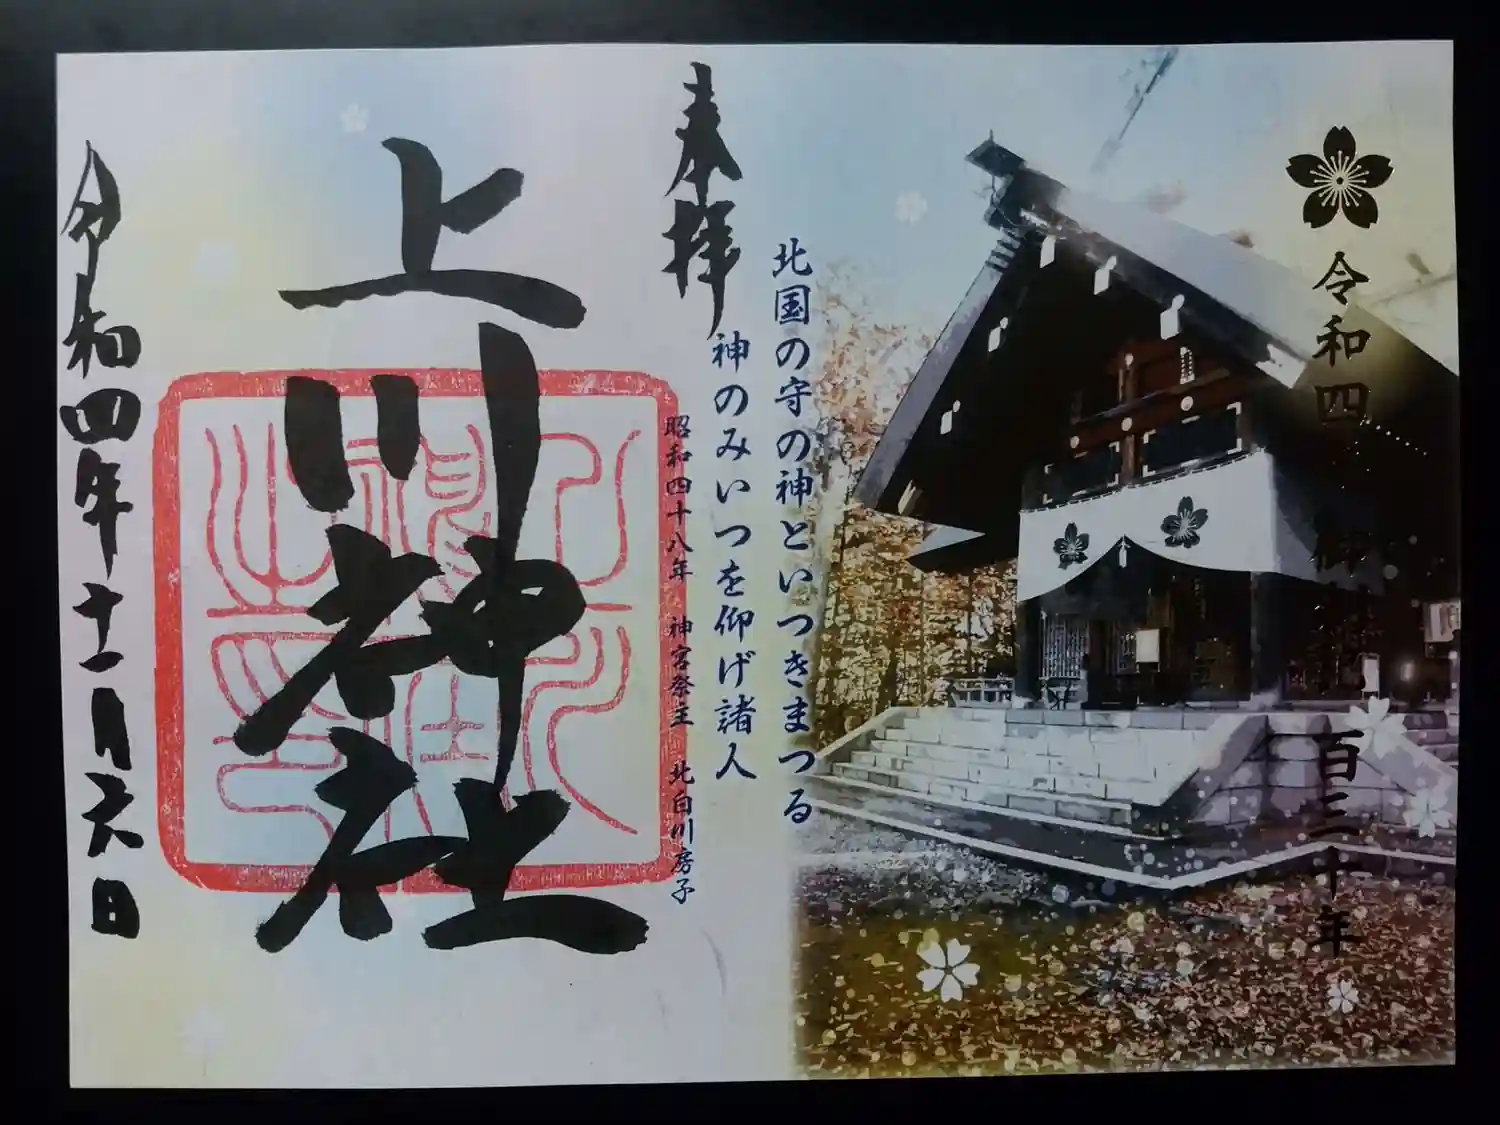 令和四年 御鎮座 百三十年
北国の守の神といつきまつる
神のみいつを仰げ諸人
昭和四十八年 神宮祭主 北白川房子
奉拝
上川神社
令和四年十一月六日